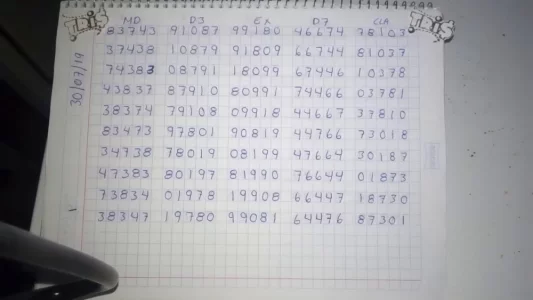 MD D3 Ex D7 CLA
83743 91087 99180 46674 78103
37438 10879 91809 66744 81037
74383 08791 18099 67446 10378
43837 87910 80991 74466 03781
38374 79108 09918 44667 37810
83473 97801 90819 44766 73018
34738 78019 08199 47664 30187
47383 80197 81990 76644 01873
73834 01978 19908 66447 18730
38347 19780 99081 64476 87301
30/07/19
1